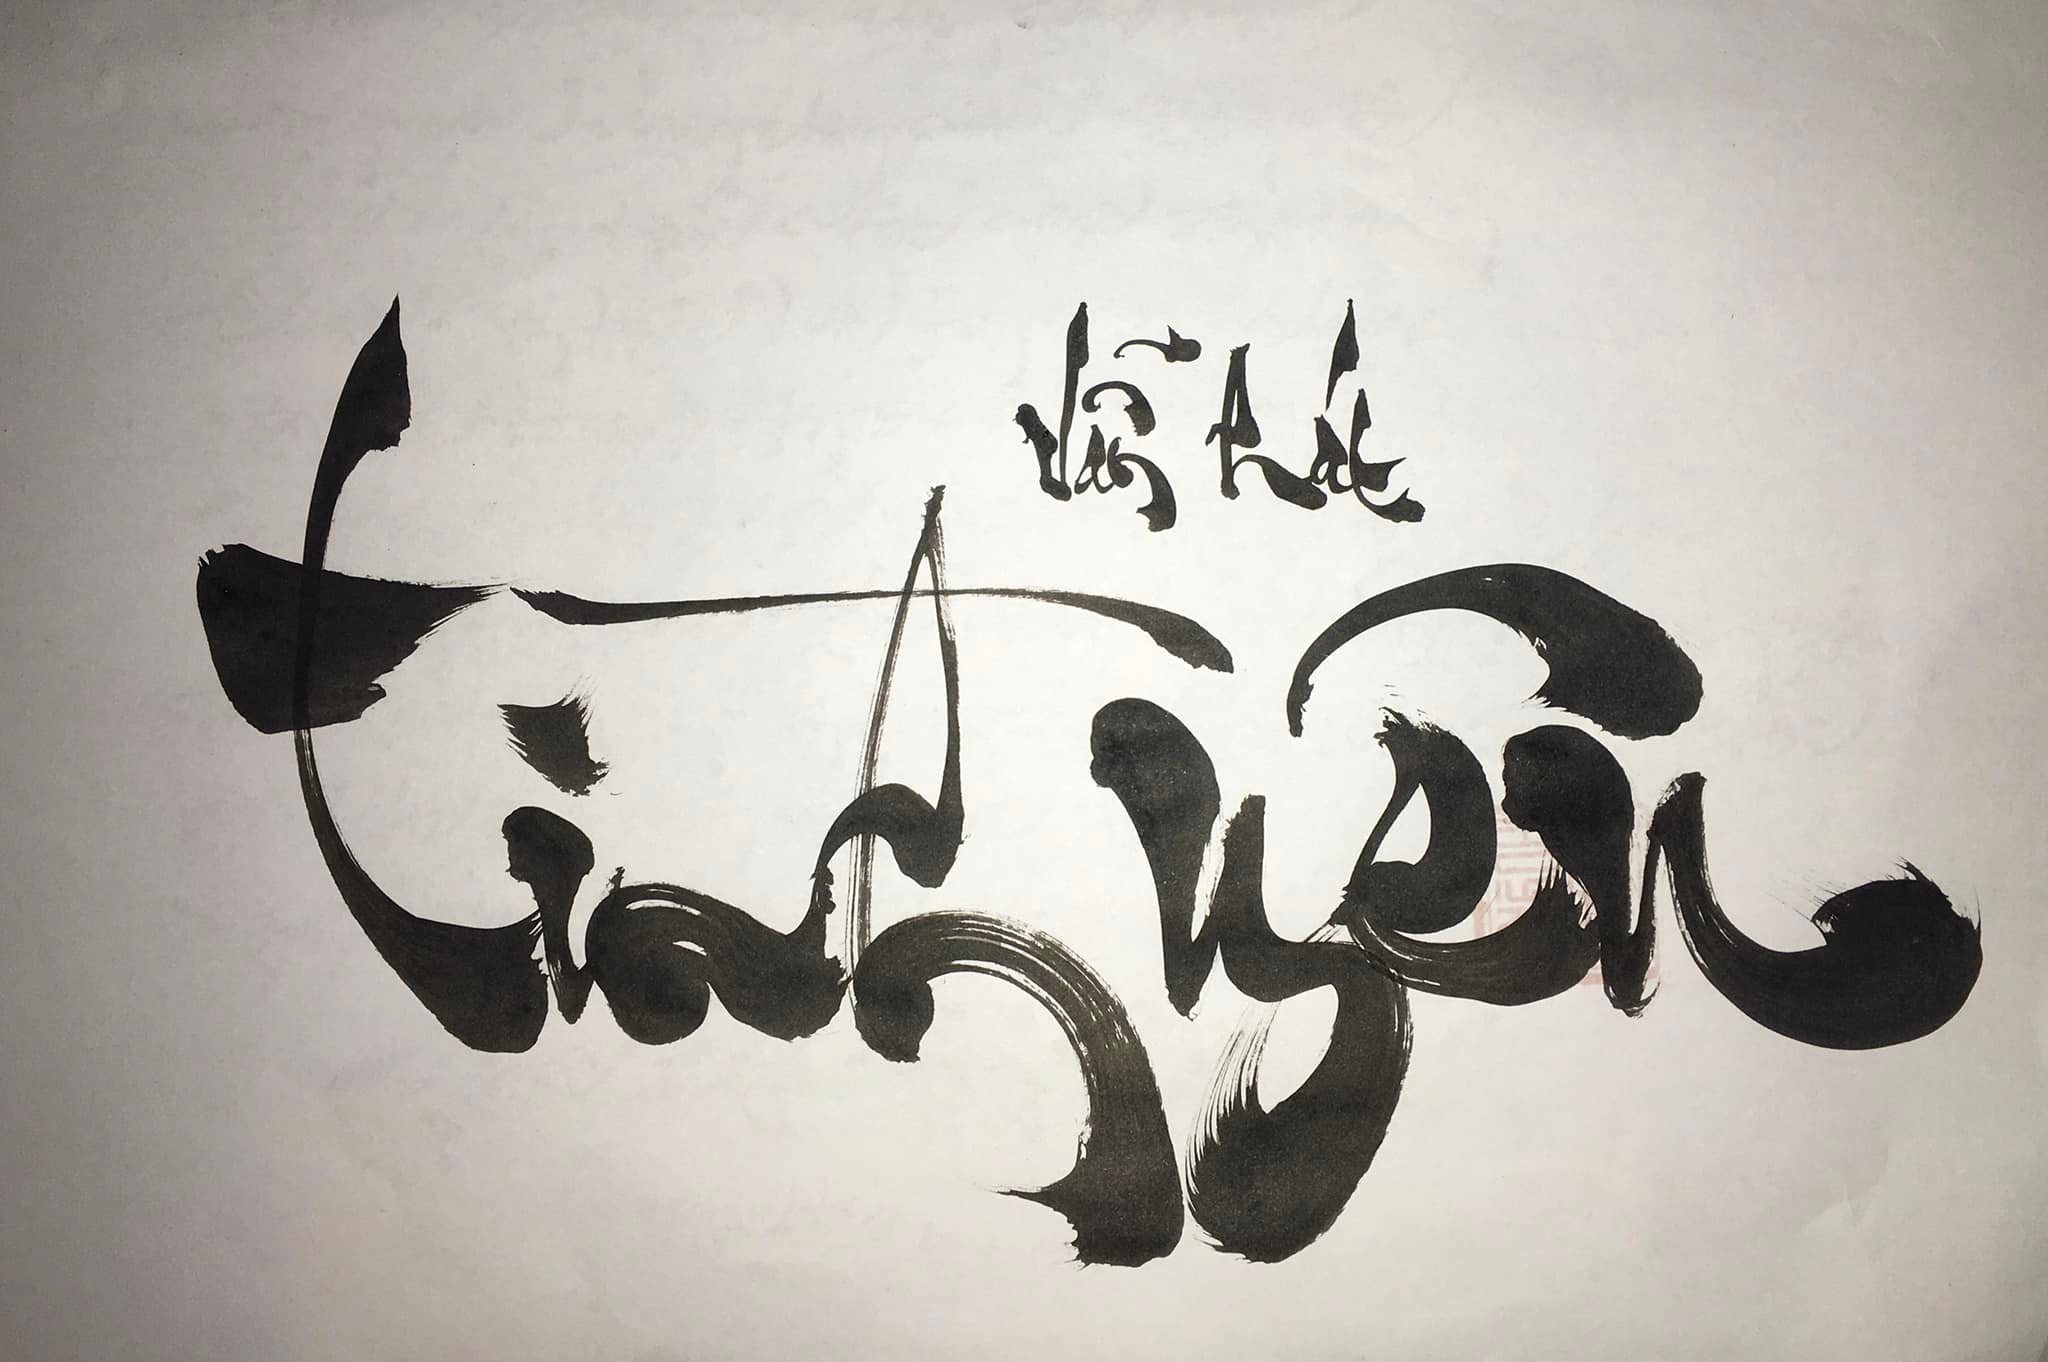 Vẫn hát
Tình yên